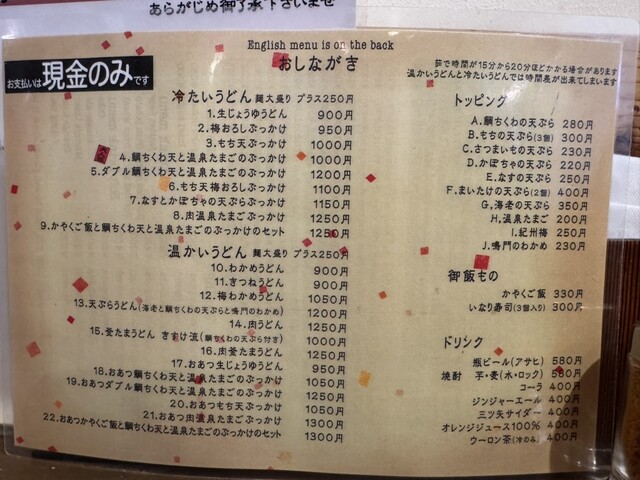 あらかじめ御了承下さいませ
English menu is on the back
おしながき
お支払いは現金のみです
茹で時間が15分から20分ほどかかる場合があります
温かいうどんと冷たいうどんでは時間差が出来てしまいます
冷たいうどん 麺大盛り プラス250円
1.生じょうゆうどん 900円
2.梅おろしぶっかけ 950円
3.もち天ぶっかけ 1000円
4.鯛ちくわ天と温泉たまごのぶっかけ 1000円
5.ダブル鯛ちくわ天と温泉たまごのぶっかけ 1200円
6.もち天梅おろしぶっかけ 1100円
7.なすとかぼちゃの天ぷらぶっかけ 1150円
8.肉温泉たまごぶっかけ 1250円
9.かやくご飯と鯛ちくわ天と温泉たまごのぶっかけのセット 1250円
温かいうどん 麺大盛り プラス250円
10.わかめうどん 900円
11.きつねうどん 900円
12.梅わかめうどん 1050円
13.天ぷらうどん(海老と鯛ちくわの天ぷらと鳴門のわかめ) 1200円
14.肉うどん 1250円
15.釜たまうどん きすけ流(鯛ちくわの天ぷら付き) 1000円
16.肉釜たまうどん 1250円
17.おあつ生じょうゆうどん 950円
18.おあつ鯛ちくわ天と温泉たまごのぶっかけ 1050円
19.おあつダブル鯛ちくわ天と温泉たまごのぶっかけ 1250円
20.おあつもち天ぶっかけ 1050円
21.おあつ肉温泉たまごのぶっかけ 1300円
22.おあつかやくご飯と鯛ちくわ天と温泉たまごのぶっかけのセット 1300円
トッピング
A.鯛ちくわの天ぷら 280円
B.もちの天ぷら(3個) 300円
C.さつまいもの天ぷら 230円
D.かぼちゃの天ぷら 220円
E.なすの天ぷら 250円
F.まいたけの天ぷら(2個) 400円
G.海老の天ぷら 350円
H.温泉たまご 200円
I.紀州梅 250円
J.鳴門のわかめ 230円
御飯もの
かやくご飯 330円
いなり寿司(3個入り) 300円
ドリンク
瓶ビール(アサヒ) 580円
焼酎 芋・麦(水・ロック) 580円
コーラ 400円
ジンジャーエール 400円
三ツ矢サイダー 400円
オレンジジュース100% 400円
ウーロン茶(冷のみ) 400円